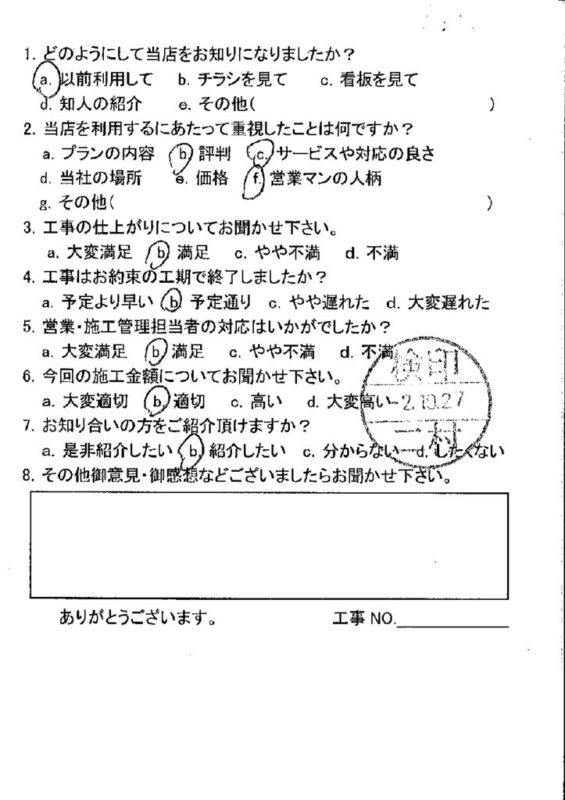 1. どのようにして当店をお知りになりましたか？
a. 以前利用して b. チラシを見て c. 看板を見て
d. 知人の紹介 e. その他( )
2. 当店を利用するにあたって重視したことは何ですか？
a. プランの内容 b 評判 c. サービスや対応の良さ
d. 当社の場所 e. 価格 f. 営業マンの人柄
g. その他( )
3. 工事の仕上がりについてお聞かせ下さい。
a. 大変満足 b 満足 c. やや不満 d. 不満
4. 工事はお約束の工期で終了しましたか？
a. 予定より早い b 予定通り c. やや遅れた d. 大変遅れた
5. 営業・施工管理担当者の対応はいかがでしたか？
a. 大変満足 b 満足 c. やや不満 d. 不満
6. 今回の施工金額についてお聞かせ下さい。
a. 大変適切 b. 適切 c. 高い d. 大変高い
7. お知り合いの方をご紹介頂けますか？
a. 是非紹介したい b 紹介したい c. 分からない d. したくない
検印
2.10.27
村
8. その他御意見・御感想などございましたらお聞かせ下さい。
ありがとうございます。 工事 NO.